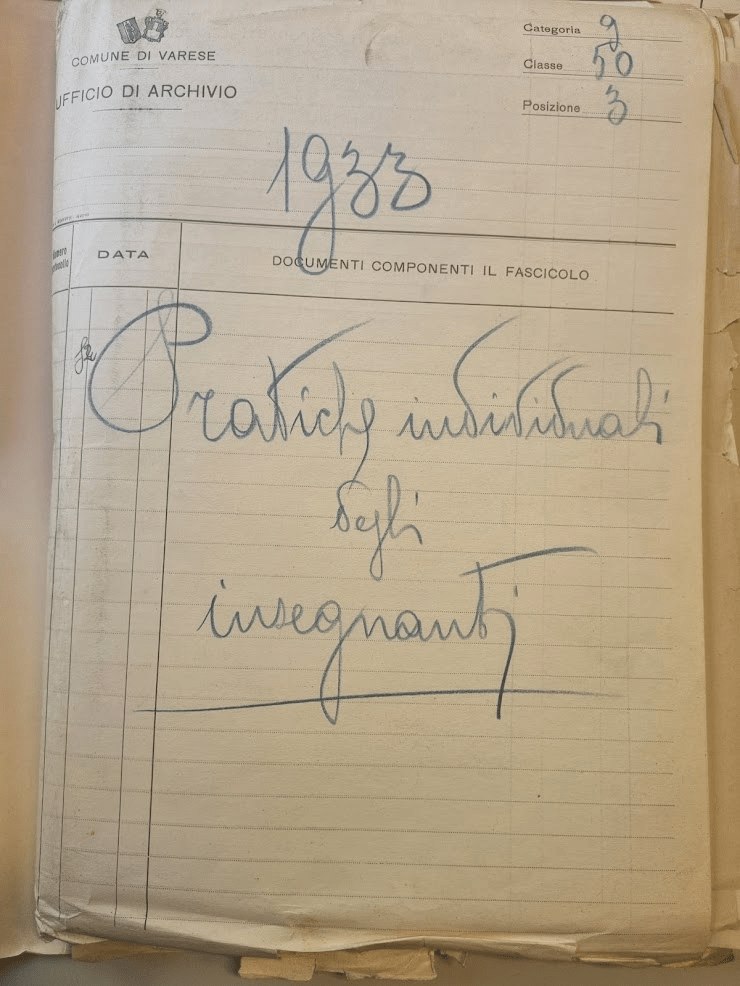 COMUNE DI VARESE
UFFICIO DI ARCHIVIO
Categoria 9
Classe 50
Posizione 3
1933
Numero
DATA
DOCUMENTI COMPONENTI IL FASCICOLO
Pratiche individuali
degli
insegnanti